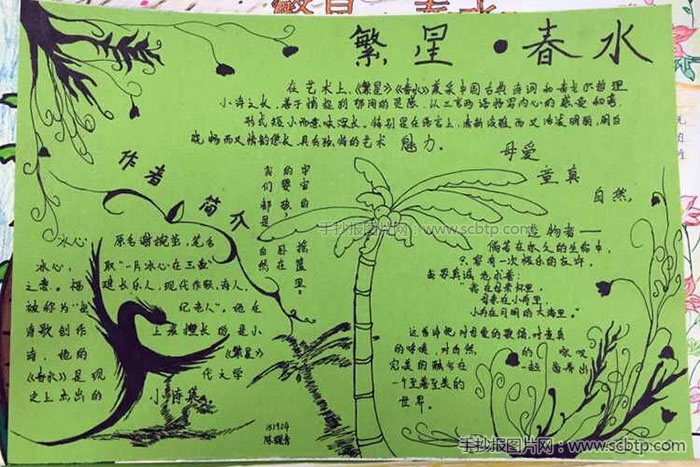 繁星·春水
在艺术上,《繁星》《春水》兼采中国古典诗词和泰戈尔哲理
小诗之长,善于捕捉刹那间的灵感,以三言两语抒写内心的感受和
形式短小而意味深长。特别是在语言上,清新淡雅而又
晓畅而又情韵悠长,具有独特的艺术魅力。
母爱
童真
自然
作者简介
我们都是自然的
婴孩,
宇宙的摇篮里。
冰心,原名谢婉莹,笔名
冰心,取“一片冰心在玉壶”
之意。福建长乐人,现代作家,诗人,
被称为“世纪老人”。她在
诗歌创作上最擅长的是小
诗,她的《繁星》
《春水》是现代文学
史上杰出的小诗集
造物者——
倘若在永久的生命中,
只容有一次极乐的应许。
我要至诚地求着:
我在母亲怀里,
母亲在小舟里,
小舟在月明的大海里。
这首诗把对母爱的歌颂,对童真
的呼唤,对自然的咏叹
完美的融合在一起
一个至善至美的
世界。
手抄报图片网:www.scbtp.com
手抄报图片网:www.scbtp.com